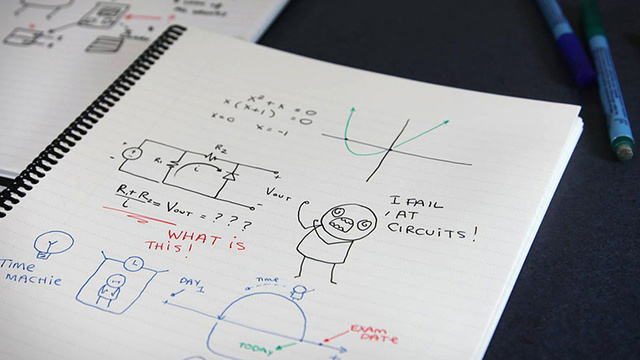 x² + x = 0
x(x+1) = 0
x=0 x = -1
R2
R1
L
Vout
R1 + R2 = Vout = ? ? ?
L
WHAT IS
THIS!
I FAIL
AT
CIRCUITS!
TIME
MACHIE
DAY 1
TIME
TODAY
EXAM
DATE